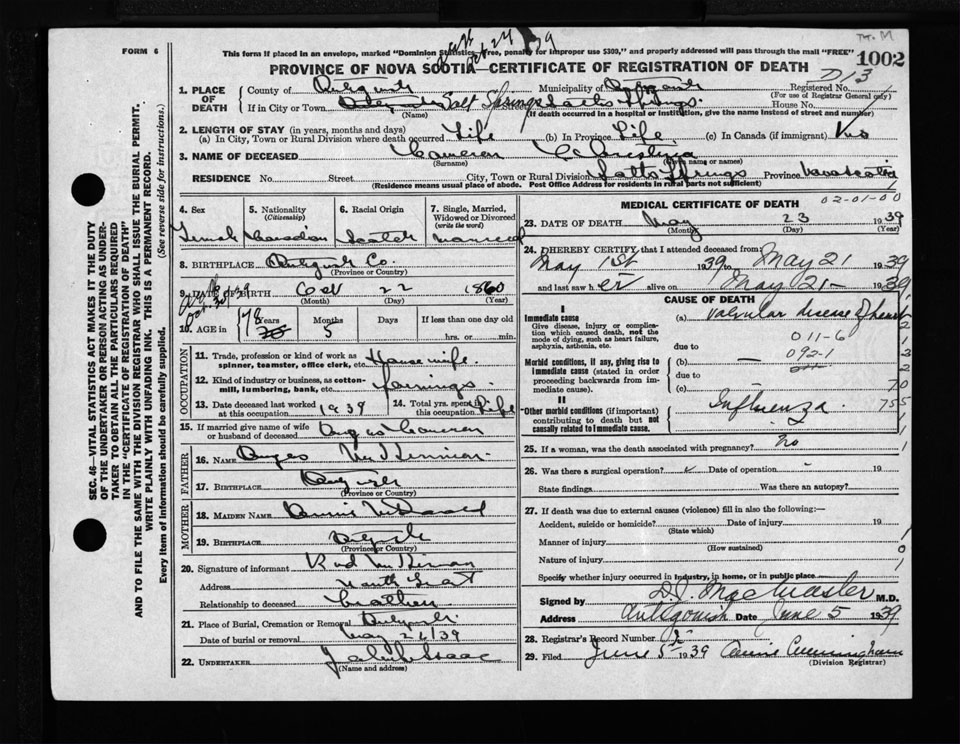 FORM 6
This form if placed in an envelope, marked "Dominion Statistics—Free, penalty for improper use $300," and properly addressed will pass through the mail "FREE"
Oct 24 39
1002
PROVINCE OF NOVA SCOTIA—CERTIFICATE OF REGISTRATION OF DEATH
D13
1. PLACE OF DEATH
County of Antigonish Municipality of Antigonish Registered No.
(For use of Registrar General only)
If in City or Town Salt Springs Salts Springs House No.
(Name) (If death occurred in a hospital or institution, give name instead of street and number)
2. LENGTH OF STAY (in years, months and days)
(a) In City, Town or Rural Division where death occurred Life (b) In Province Life (c) In Canada (if immigrant)
3. NAME OF DECEASED Cameron Christina
(Surname) (First name or names)
RESIDENCE No. Street City, Town or Rural Division Salts Springs Province Nova Scotia
(Residence means usual place of abode. Post Office Address for residents in rural parts not sufficient)
4. Sex 5. Nationality (Citizenship) 6. Racial Origin 7. Single, Married, Widowed or Divorced (write the word)
Female Canadian Scotch married
8. BIRTHPLACE Antigonish Co.
(Province or Country)
9. DATE OF BIRTH Oct 22 1860
(Month) (Day) (Year)
10. AGE in 78 Years Months 5 Days If less than one day old
hrs. or min.
OCCUPATION
11. Trade, profession or kind of work as spinner, teamster, office clerk, etc. House wife
12. Kind of industry or business, as cotton-mill, lumbering, bank, etc. farmings
13. Date deceased last worked at this occupation 1939 14. Total yrs. spent in this occupation Life
15. If married give name of wife or husband of deceased Angus Cameron
FATHER
16. NAME Angus
17. BIRTHPLACE Antigonish
(Province or Country)
MOTHER
18. MAIDEN NAME Annie
19. BIRTHPLACE
(Province or Country)
20. Signature of informant
Address North Grant
Relationship to deceased brother
21. Place of Burial, Cremation or Removal Antigonish
Date of burial or removal May 26/39
22. UNDERTAKER
(Name and address)
02-01-00
MEDICAL CERTIFICATE OF DEATH
23. DATE OF DEATH May 23 1939
(Month) (Day) (Year)
24. I HEREBY CERTIFY that I attended deceased from:
May 1st 1939 to May 21 1939
and last saw her alive on May 21 – 1939
CAUSE OF DEATH
I
Immediate cause
Give disease, injury or complication which caused death, not the mode of dying, such as heart failure, asphyxia, asthenia, etc.
(a) Valvular disease of heart
due to
011-6
092-1
Morbid conditions, if any, giving rise to immediate cause (stated in order proceeding backwards from immediate cause).
(b)
due to
(c)
70
II
Other morbid conditions (if important) contributing to death but not causally related to immediate cause.
Influenza
755
25. If a woman, was the death associated with pregnancy? No
26. Was there a surgical operation? Date of operation 19
State findings Was there an autopsy?
27. If death was due to external causes (violence) fill in also the following:—
Accident, suicide or homicide? Date of injury 19
(State which)
Manner of injury
(How sustained)
Nature of injury
Specify whether injury occurred in industry, in home, or in public place
Signed by D.J. MacMaster M.D.
Address Antigonish Date June 5 1939
28. Registrar's Record Number
29. Filed June 5th 1939 Annie Cunningham
(Division Registrar)
SEC. 46—VITAL STATISTICS ACT MAKES IT THE DUTY
OF THE UNDERTAKER OR PERSON ACTING AS UNDER-
TAKER TO OBTAIN ALL THE PARTICULARS REQUIRED
IN THE "CERTIFICATE OF REGISTRATION OF DEATH"
AND TO FILE THE SAME WITH THE DIVISION REGISTRAR WHO SHALL ISSUE THE BURIAL PERMIT.
WRITE PLAINLY WITH UNFADING INK. THIS IS A PERMANENT RECORD.
Every item of Information should be carefully supplied. (See reverse side for instructions.)